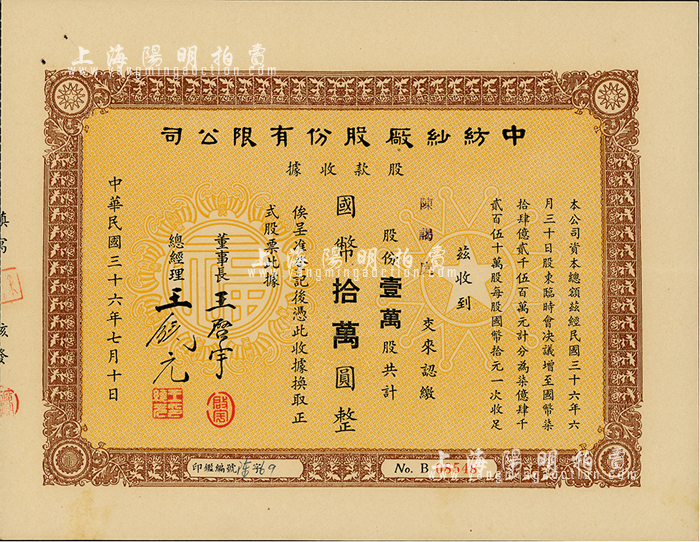 上海陽明拍賣
www.yangmingauction.com
中紡紗廠股份有限公司
股款收據
本公司資本總額茲經民國三十六年六
月三十日股東臨時會決議增至國幣柒
拾肆億貳千伍百萬元計分為柒億肆千
貳百伍十萬股每股國幣拾元一次收足
茲收到
陳 交來認繳
股份壹萬股共計
國幣拾萬圓整
俟呈准登記後憑此收據換取正
式股票此據
董事長 王啓宇
總經理 王
中華民國三十六年七月十日
印鑑編號
No. B 05548
上海陽明拍賣
www.yangmingauction.com
上海陽明拍賣
www.yangmingauction.com